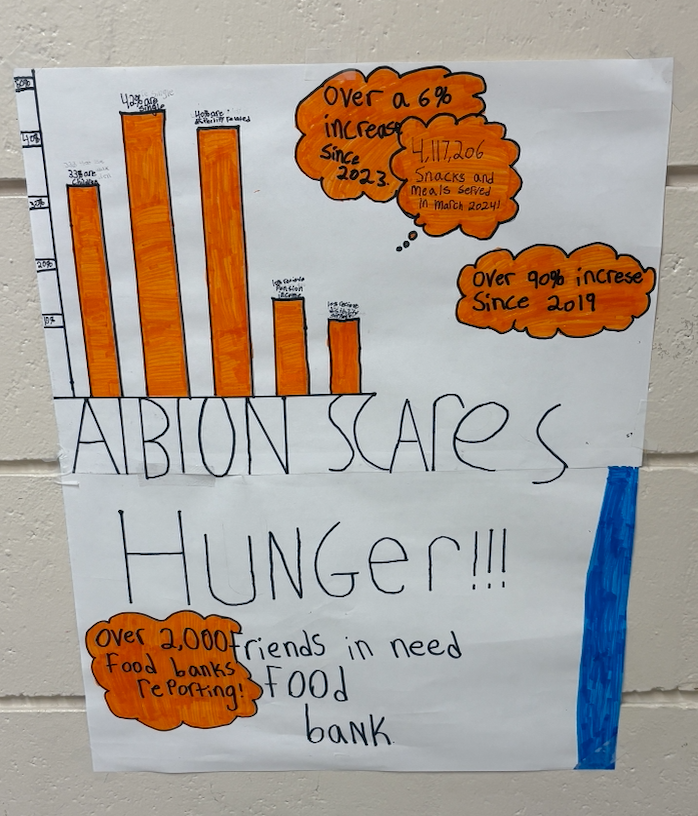 50%
40%
30%
20%
10%
33% are
children
42% are
single
40% are
18% receive
Pension
income
Over a 6%
increase
Since
2023.
4,117,206
Snacks and
meals served
in march 2024!
Over 90% increse
Since 2019
AlBION SCAreS
HUNGer!!!
Over 2,000
Food banks
reporting!
friends in need
FOOd
baNK